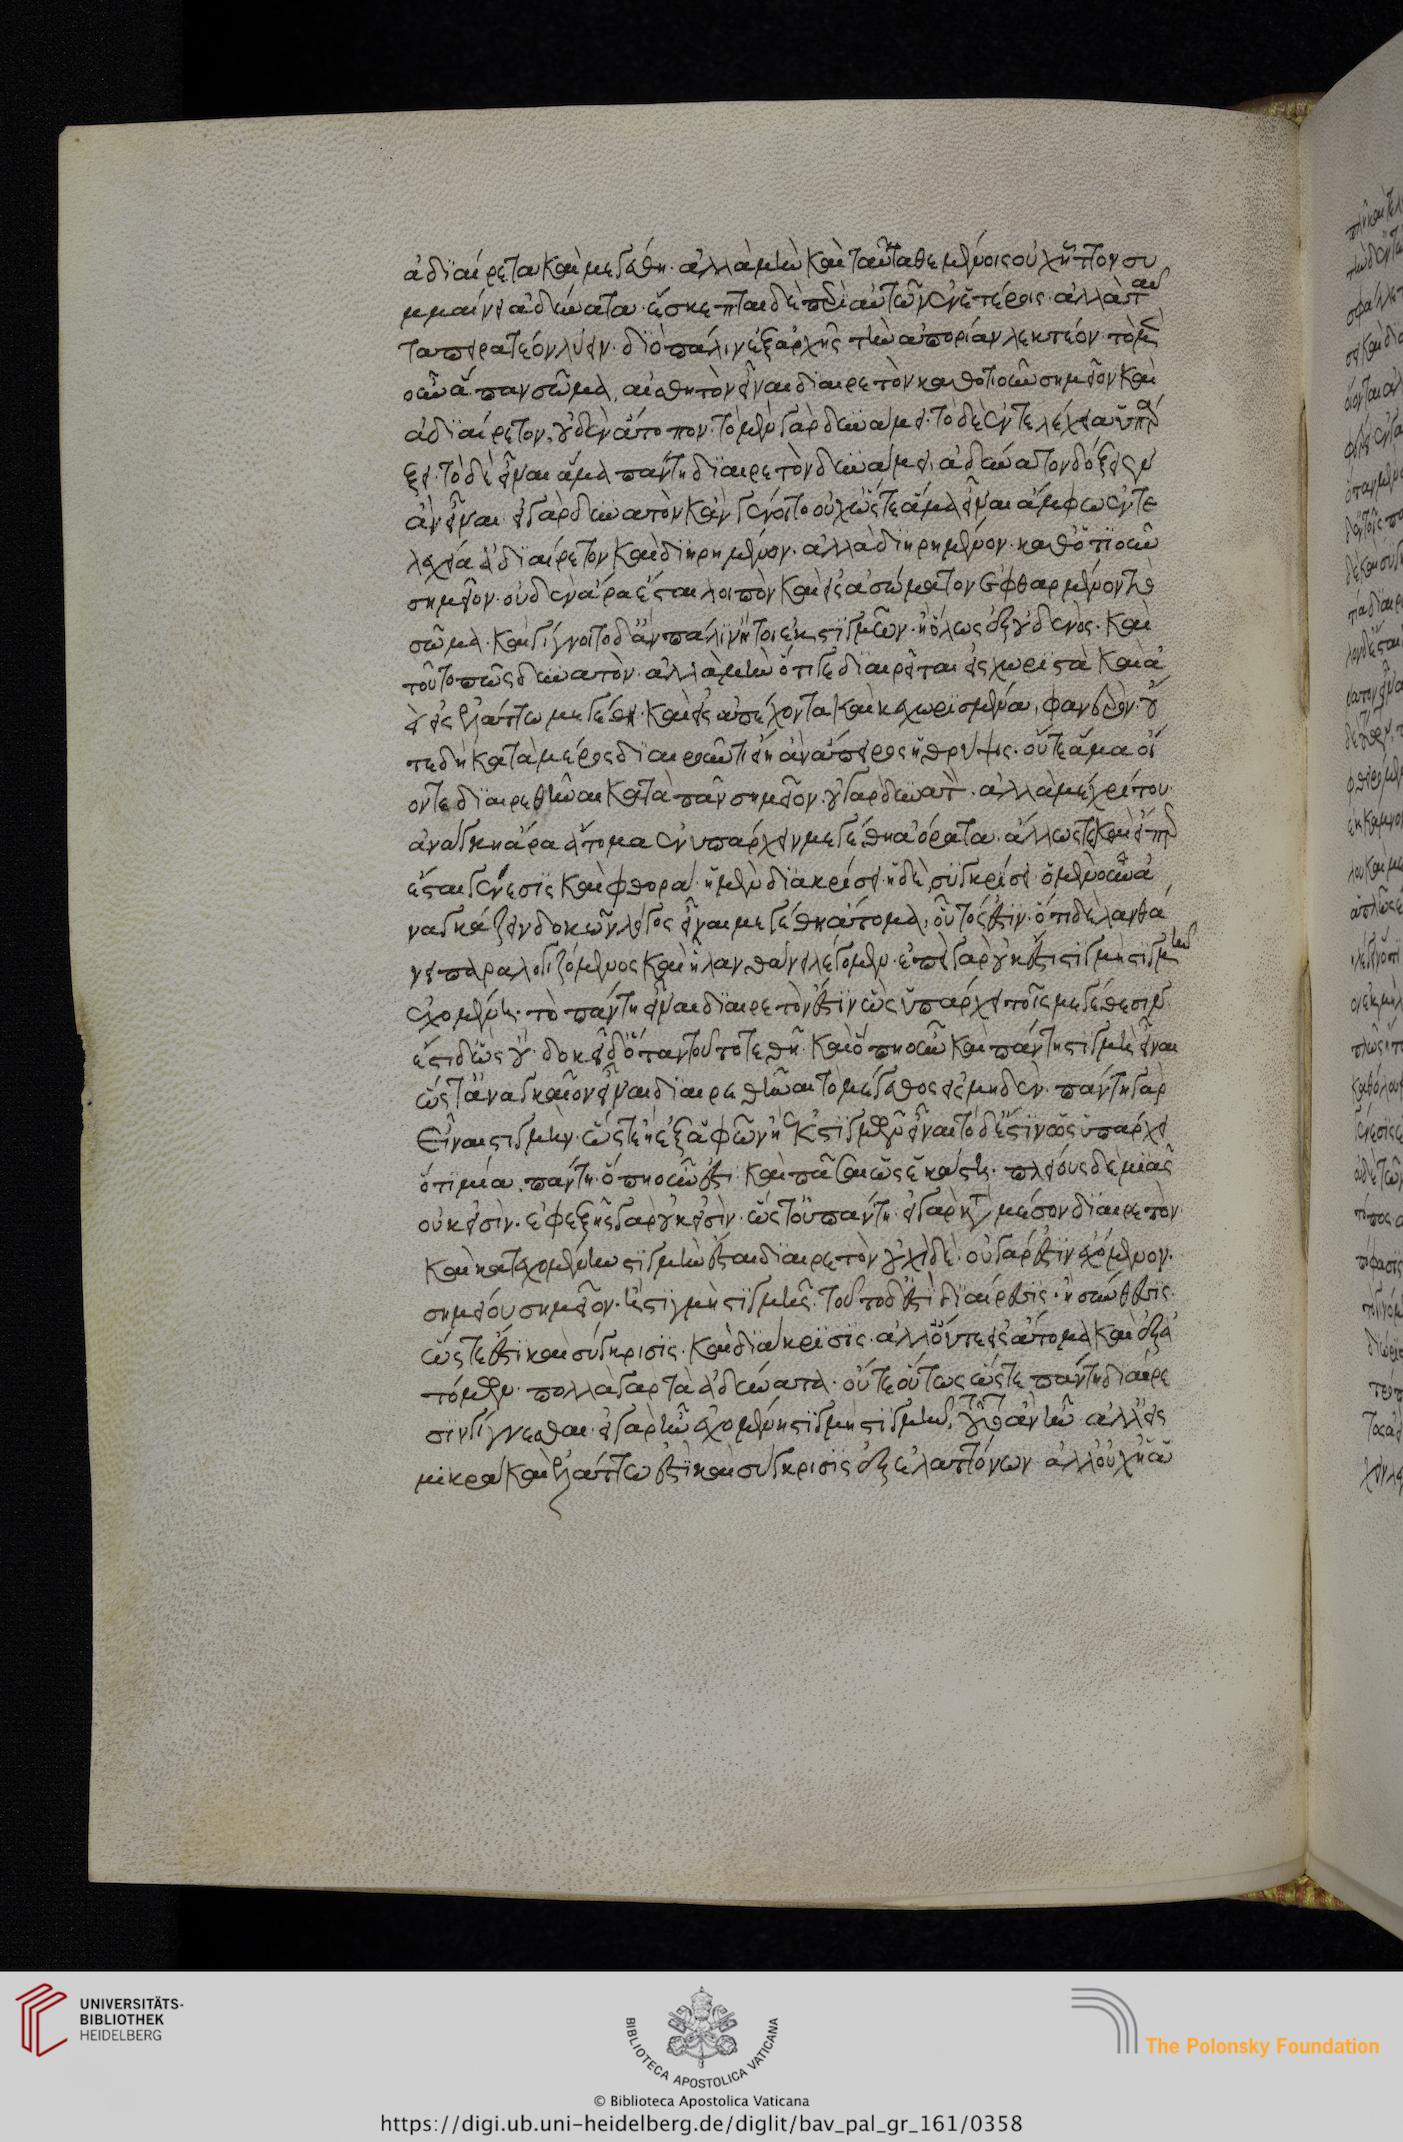 ἀδιαίρετα καὶ μεγέθη· ἀλλὰ μὴν καὶ ταῦτα θεμένοις οὐχ ἧττον συ
μβαίνει ἀδύνατα· ἔσκεπται δὲ περὶ αὐτῶν ἐν ἑτέροις· ἀλλὰ ταῦ
τα πειρατέον λύειν· διὸ πάλιν ἐξ ἀρχῆς τὴν ἀπορίαν λεκτέον· τὸ μὲν
οὖν ἅπαν σῶμα, αἰσθητὸν εἶναι διαιρετὸν καθ' ὁτιοῦν σημεῖον καὶ
ἀδιαίρετον, οὐδὲν ἄτοπον· τὸ μὲν γὰρ δυνάμει· τὸ δὲ ἐντελεχεία ὑπάρ
ξει· τὸ δὲ εἶναι ἅμα πάντη διαιρετὸν δυνάμει, ἀδύνατον δόξειεν
ἂν εἶναι· εἰ γὰρ δυνατὸν κἂν γένοιτο οὐχ ὥστε ἅμα εἶναι ἄμφω ἐντε
λεχεία ἀδιαίρετον καὶ διηρημένον· ἀλλὰ διηρημένον· καθ' ὁτιοῦν
σημεῖον· οὐδὲν ἄρα ἔσται λοιπὸν καὶ εἰς ἀσώματον ἐφθαρμένον τὸ
σῶμα· καὶ γίγνοιτο δ' ἂν πάλιν ἤτοι ἐκ στιγμῶν· ἢ ὅλως ἐξ οὐδενός· καὶ
τοῦτο πῶς δυνατὸν· ἀλλὰ μὴν ὅτι γε διαιρεῖται εἰς χωριστὰ καὶ ἀ
εὶ εἰς ἐλάττω μεγέθη· καὶ εἰς ἀπέχοντα καὶ κεχωρισμένα, φανερόν· οὔ
τε δὴ κατὰ μέρος διαιροῦντι εἴη ἂν ἄπειρος ἡ θρύψις· οὔτε ἅμα οἷ
όν τε διαιρεθῆναι κατὰ πᾶν σημεῖον· οὐ γὰρ δυνατὸν· ἀλλὰ μέχρι του·
ἀνάγκη ἄρα ἄτομα ἐνυπάρχειν μεγέθη ἀόρατα· ἄλλως τε καὶ εἴπερ
ἔσται γένεσις καὶ φθορά· ἡ μὲν διακρίσει· ἡ δὲ συγκρίσει· ὁ μὲν οὖν ἀ
ναγκάζειν δοκῶν λόγος εἶναι μεγέθη ἄτομα, οὗτός ἐστιν· ὅτι δὲ λανθά
νει παραλογιζόμενος καὶ ἧ λανθάνει λέγομεν· ἐπεὶ γὰρ οὐκ ἔστι στιγμὴ στιγμῆς
ἐχομένη· τὸ πάντη εἶναι διαιρετὸν ἔστιν ὡς ὑπάρχει τοῖς μεγέθεσιν·
ἔστι δ' ὡς οὔ· δοκεῖ δ' ὅταν τοῦτο τεθῆ· καὶ ὅπηοῦν καὶ πάντη στιγμὴν εἶναι
ὥστ' ἀναγκαῖον εἶναι διαιρεθῆναι τὸ μέγεθος εἰς μηδέν· πάντη γὰρ
εἶναι στιγμήν· ὥστε ἢ ἐξ ἁφῶν ἢ ἐκ στιγμῶν εἶναι· τὸ δ' ἔστιν ὡς ὑπάρχει
ὅτι μία, πάντη· ὅπηοῦν ἐστι καὶ πᾶσαι ὡς ἑκάστη· πλείους δὲ μιᾶς
οὐκ εἰσίν· ἐφεξῆς γὰρ οὐκ εἰσίν· ὥστ' οὐ πάντη· εἰ γὰρ κατὰ μέσον διαιρετὸν
καὶ κατ' ἐχομένην στιγμὴν ἔσται διαιρετὸν οὐχὶ δέ· οὐ γάρ ἐστιν ἐχόμενον·
σημεῖον σημεῖον· ἢ στιγμὴ στιγμῆς· τοῦτο δ' ἐστὶ διαίρεσις· ἢ σύνθεσις·
ὥστε ἔστι καὶ σύγκρισις· καὶ διάκρισις· ἀλλ' οὔτε εἰς ἄτομα καὶ ἐξ ἀ
τόμων· πολλὰ γὰρ τὰ ἀδύνατα· οὔτε οὕτως ὥστε πάντη διαίρε
σιν γίγνεσθαι· εἰ γὰρ ἦν ἐχομένη στιγμὴ στιγμῆς, τοῦτ' ἂν ἦν ἀλλ' εἰς
μικρὰ καὶ ἐλάττω ἐστὶ καὶ σύγκρισις ἐξ ἐλαττόνων ἀλλ' οὐχ ἡ ἁ
UNIVERSITÄTS-
BIBLIOTHEK
HEIDELBERG
BIBLIOTECA APOSTOLICA VATICANA
The Polonsky Foundation
© Biblioteca Apostolica Vaticana
https://digi.ub.uni-heidelberg.de/diglit/bav_pal_gr_161/0358